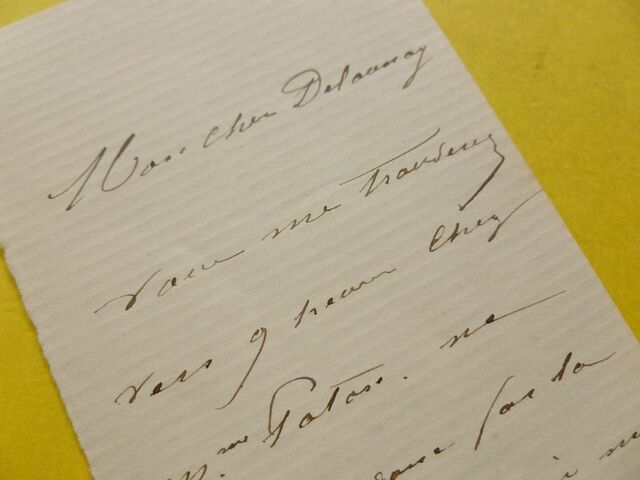 Mon cher Delaunay
vous me trouverez
vers 9 heures chez
Mme Paton. ne
pas la
à